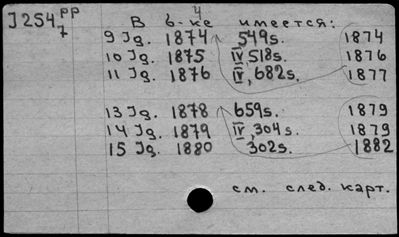 J 254 pp/7
4
В б-ке имеется:
9 Jg. 1874 549s. 1874
10 Jg. 1875 IV, 518s. 1876
11 Jg. 1876 IV, 682s. 1877
13 Jg. 1878 659s. 1879
14 Jg. 1879 IV, 304s. 1879
15 Jg. 1880 302s. 1882
см. след. карт.